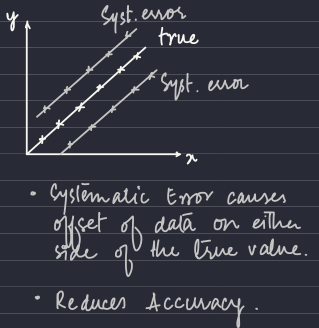 y
Syst. error
true
Syst. error
x
• Systematic Error causes
offset of data on either
side of the true value.
• Reduces Accuracy.